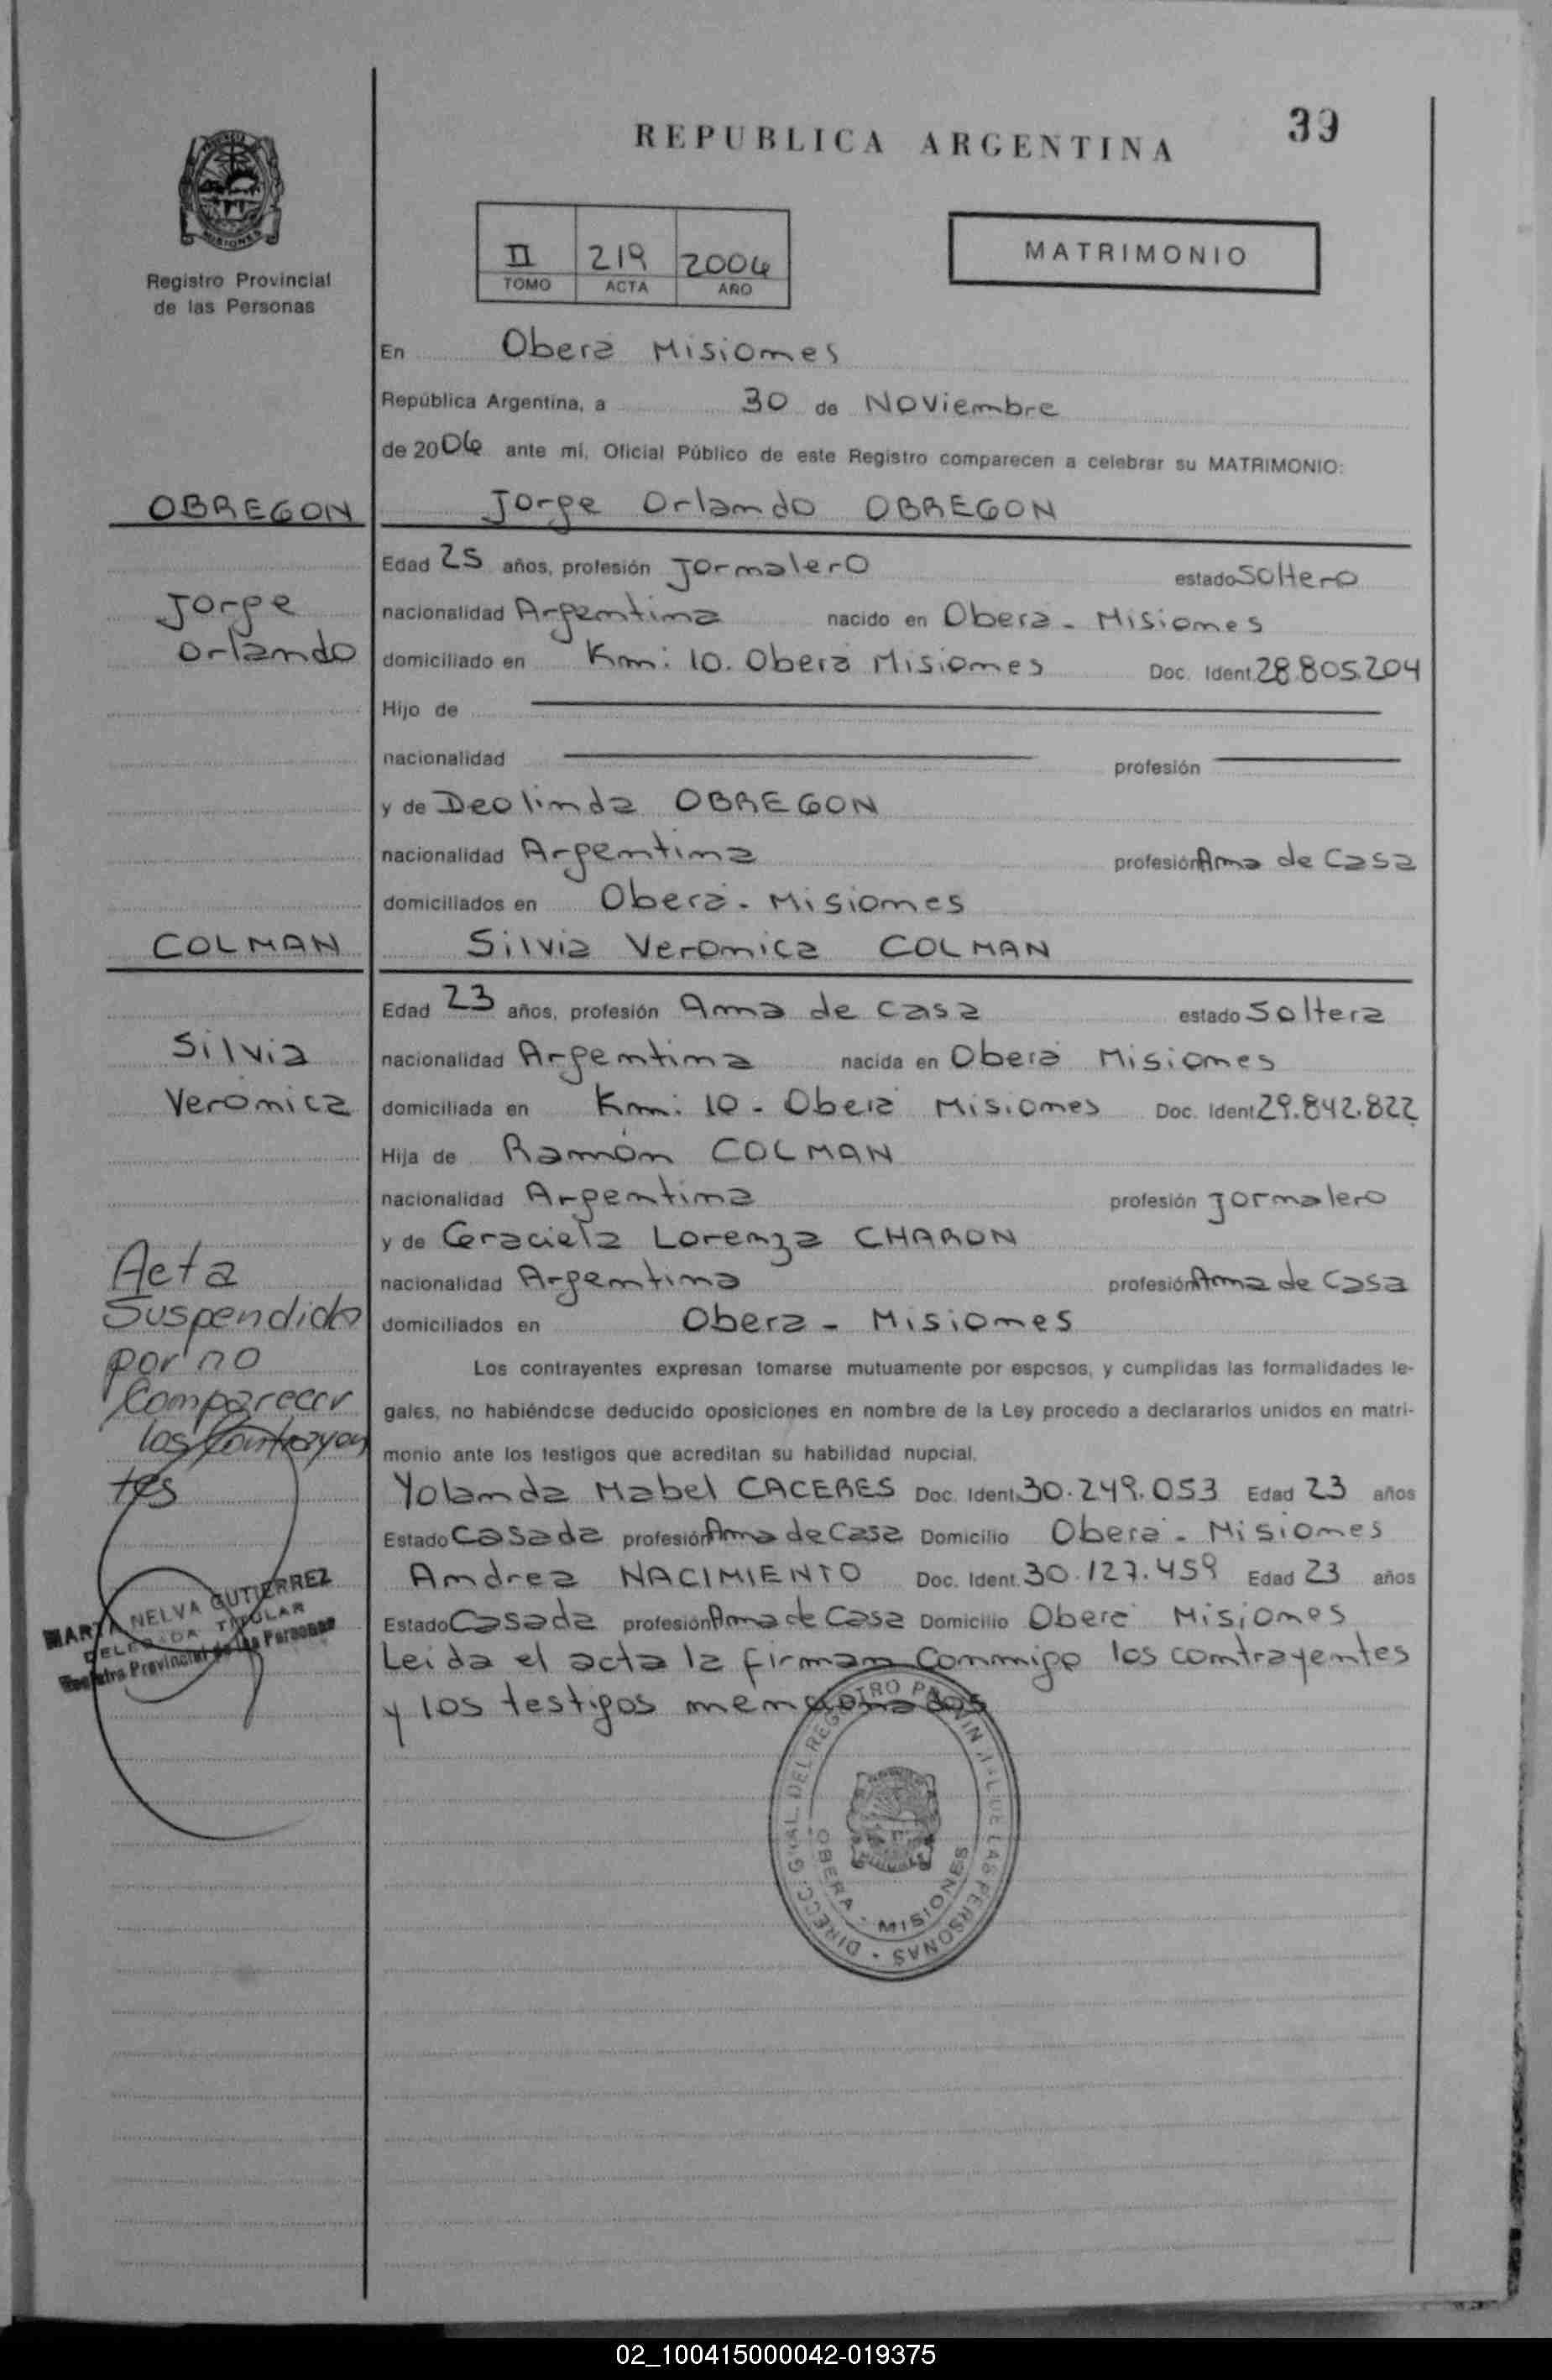 REPUBLICA ARGENTINA
39
Registro Provincial
de las Personas
II 219 2006
TOMO ACTA AÑO
MATRIMONIO
En Oberá Misiones
República Argentina, a 30 de Noviembre
de 2006 ante mí, Oficial Público de este Registro comparecen a celebrar su MATRIMONIO:
OBREGON
Jorge Orlando OBREGON
Jorge
Orlando
Edad 25 años, profesión Jornalero estado Soltero
nacionalidad Argentina nacido en Oberá - Misiones
domiciliado en Km: 10. Oberá Misiones Doc. Ident. 28.805.204
Hijo de
nacionalidad profesión
y de Deolinda OBREGON
nacionalidad Argentina profesión Ama de Casa
domiciliados en Oberá - Misiones
COLMAN
Silvia Veronica COLMAN
Silvia
Verónica
Edad 23 años, profesión Ama de casa estado Soltera
nacionalidad Argentina nacida en Oberá Misiones
domiciliada en Km: 10 - Oberá Misiones Doc. Ident. 29.842.822
Hija de Ramón COLMAN
nacionalidad Argentina profesión Jornalero
y de Graciela Lorenza CHARON
nacionalidad Argentina profesión Ama de Casa
domiciliados en Obera - Misiones
Acta
Suspendida
por no
Comparecer
los Contrayen
tes
Los contrayentes expresan tomarse mutuamente por esposos, y cumplidas las formalidades le-
gales, no habiéndose deducido oposiciones en nombre de la Ley procedo a declararlos unidos en matri-
monio ante los testigos que acreditan su habilidad nupcial.
Yolanda Mabel CACERES Doc. Ident. 30.249.053 Edad 23 años
Estado Casada profesión Ama de Casa Domicilio Oberá - Misiones
Andrea NACIMIENTO Doc. Ident. 30.127.459 Edad 23 años
Estado Casada profesión Ama de Casa Domicilio Oberá Misiones
Leída el acta la firman Conmigo los contrayentes
y los testigos mencionados
NELVA GUTIERREZ
DELEGADA TITULAR
Registro Provincial de las Personas
DIRECC. GRAL. DEL REGISTRO PROVINCIAL DE LAS PERSONAS
OBERA - MISIONES
02_100415000042-019375